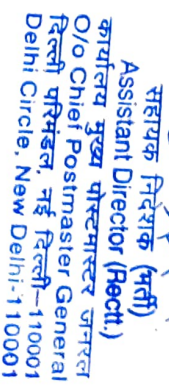 सहायक निदेशक (भर्ती)
Assistant Director (Rectt.)
कार्यालय मुख्य पोस्टमास्टर जनरल
O/o Chief Postmaster General
दिल्ली परिमंडल, नई दिल्ली-110001
Delhi Circle, New Delhi-110001